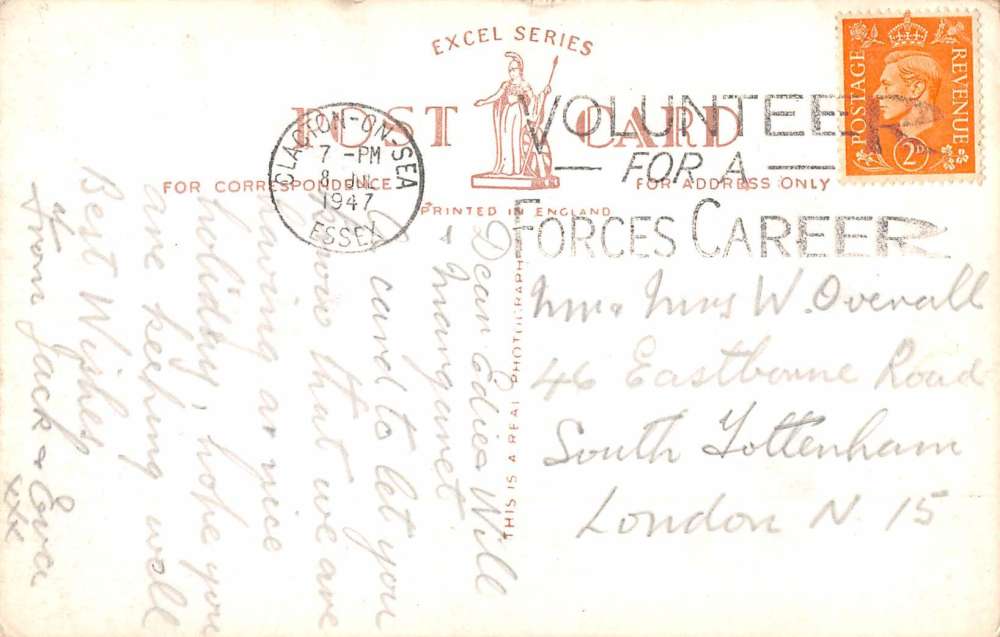 EXCEL SERIES
POST CARD
FOR CORRESPONDENCE
FOR ADDRESS ONLY
PRINTED IN ENGLAND
THIS IS A REAL PHOTOGRAPH
CLACTON-ON-SEA
7 - PM
8 JUL
1947
ESSEX
VOLUNTEER
FOR A
FORCES CAREER
POSTAGE
REVENUE
2D
Mr & Mrs W. Overall
46 Eastborne Road
South Tottenham
London N 15
Dear Edie & Will
& Margaret
card to let you
know that we are
having a nice
holiday, hope you
are keeping well
Best Wishes
from Jack & Eva
xxx